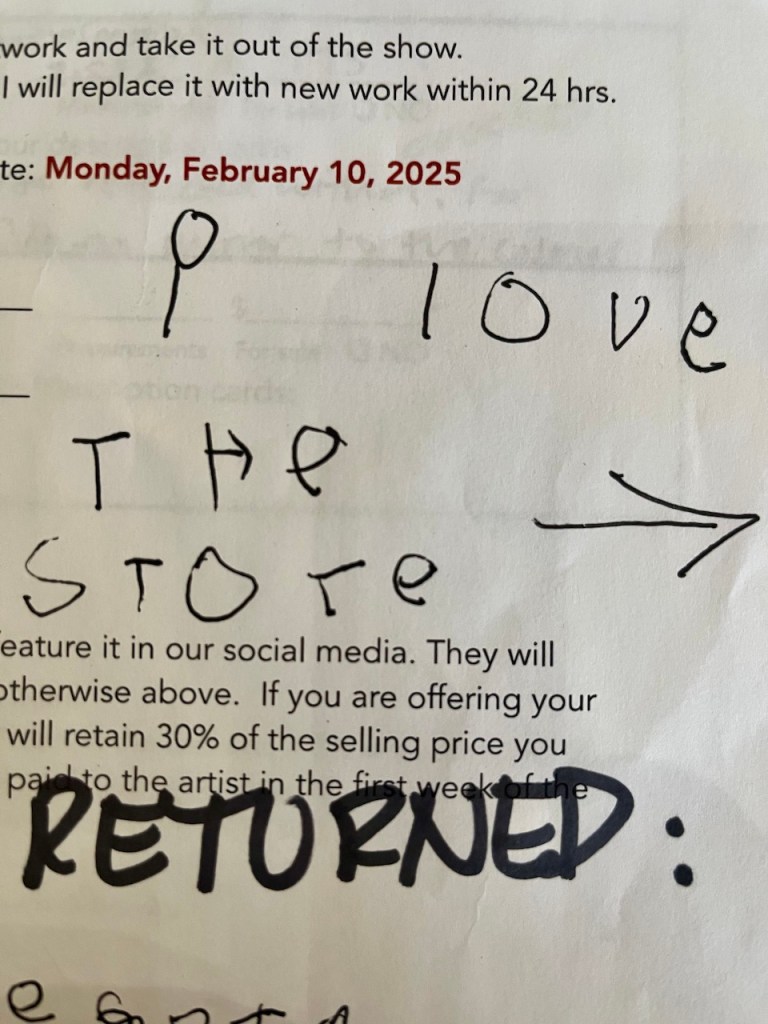 work and take it out of the show.
I will replace it with new work within 24 hrs.
te: Monday, February 10, 2025
P love
THe
STOre
eature it in our social media. They will
otherwise above. If you are offering your
will retain 30% of the selling price you
paid to the artist in the first week of the
RETURNED: